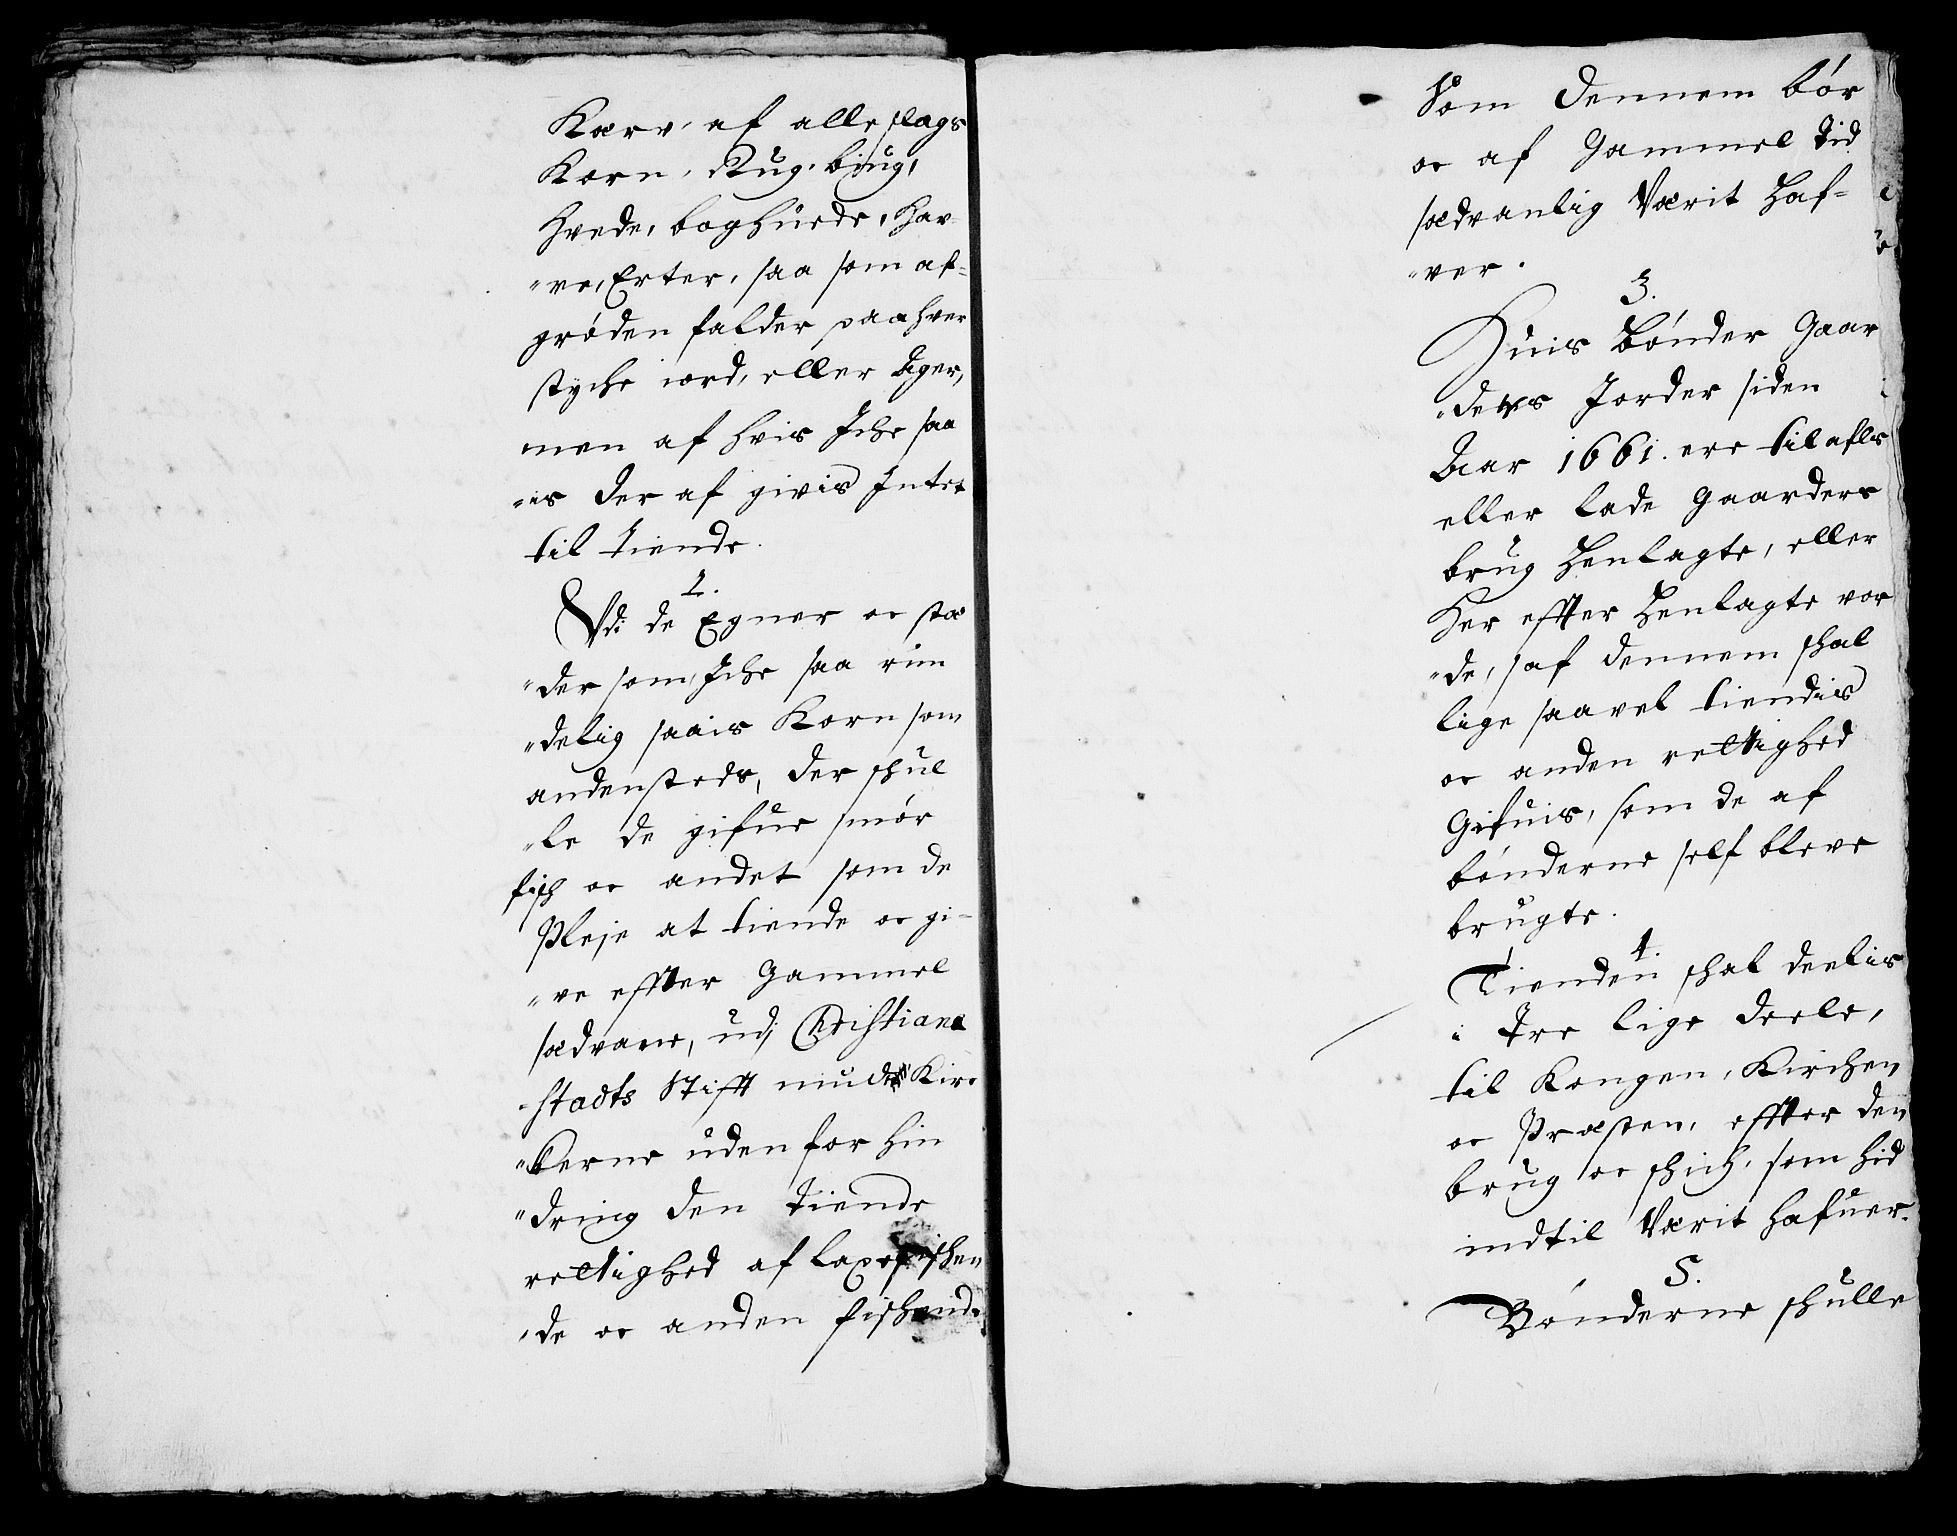 Kærv af alle slags
Korn, Rug, biug,
Hvede, boghuede, Hav-
"re, Erter, saa som af=
grøden falder paa hver
styche iord, eller Ager,
men af hvis Iche saa
"is der af givis Intet
til tiende.
2.
Udi de Egner oc stæ
"der som Iche saa run
"delig saais Korn som
andensteds, der skul
"le de gifue smør
fisk oc andet som de
Pleje at tiende oc gi-
"ve effter Gammel
sædvane, udi Christians
"stadts Stifft Kir
"berne uden for hin
"dring den tiende
rettighed af laxefischen
"de oc anden fischende
Som dennem bør
oc af Gammel tid
sædvanlig Værit Haf=
"ver.
3.
Huis Bønder Gaar
"ders Jorder siden
Aar 1661. ere til afls
eller lade Gaarders
brug Henlagte, eller
Her effter Henlagte vor
"de, af dennem skal
lige saavel tiendis
oc anden rettighed
Gifuis, som de af
bønderne self bleve
brugte.
4.
Tienden skal deelis
i tre lige deele,
til Kongen, Kirchen
oc Præsten, effter den
brug oc skich, som hid
indtil Værit hafuer.
5.
Bønderne skulle